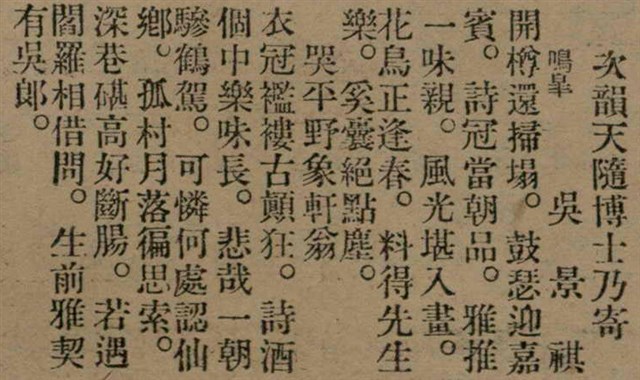 次韻天隨博士乃寄
鳴臯　吳景祺
開樽還掃塌。鼓瑟迎嘉
賓。詩冠當朝品。雅推
一味親。風光堪入畫。
花鳥正逢春。料得先生
樂。奚囊絕點塵。
哭平野象軒翁
衣冠襤褸古顛狂。詩酒
個中樂味長。悲哉一朝
驂鶴駕。可憐何處認仙
鄉。孤村月落徧思索。
深巷碪高好斷腸。若遇
閻羅相借問。生前雅契
有吳郎。